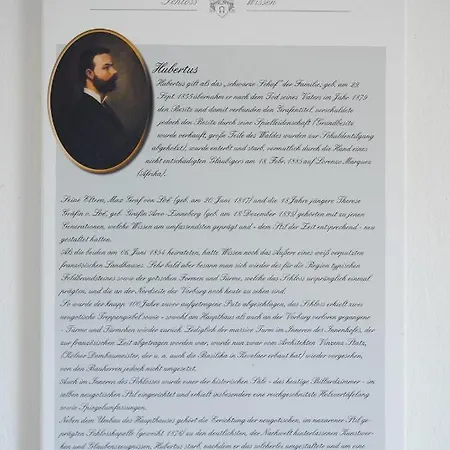 Schloss Wissen
Hubertus
Hubertus gilt als das „schwarze Schaf" der Familie, geb. am 29.
Sept. 1855 übernahm er nach dem Tod seines Vaters im Jahr 1879
den Besitz und damit verbunden den Grafentitel, verschuldete
jedoch den Besitz durch seine Spielleidenschaft (Grundbesitz
wurde verkauft, große Teile des Waldes wurden zur Schuldentilgung
abgeholzt), wurde enterbt und starb, vermutlich durch die Hand eines
nicht entschädigten Gläubigers am 18. Febr. 1885 auf Lorenzo Marquez
(Afrika).
Seine Eltern, Max Graf von Loë (geb. am 20. Juni 1817) und die 18 Jahre jüngere Therese
Gräfin v. Loë, geb. Gräfin Arco-Zinneberg (geb. am 18. Dezember 1835) gehörten mit zu jenen
Generationen, welche Wissen am umfassendsten geprägt und - dem Stil der Zeit entsprechend - neu
gestaltet hatten.
Als die beiden am 06. Juni 1854 heirateten, hatte Wissen noch das Äußere eines weiß verputzten
französischen Landhauses. Sehr bald aber besann man sich wieder des für die Region typischen
Feldbrandsteines sowie der gotischen Formen und Türme, welche das Schloss ursprünglich einmal
prägten, und die an der Nordseite der Vorburg noch heute zu sehen sind.
So wurde der knapp 100 Jahre zuvor aufgetragene Putz abgeschlagen, das Schloss erhielt zwei
neugotische Treppengiebel sowie - sowohl am Haupthaus als auch an der Vorburg verloren gegangene
- Türme und Türmchen wieder zurück. Lediglich der massive Turm im Inneren des Innenhofes, der
zur französischen Zeit abgetragen worden war, wurde nun zwar vom Architekten Vinzenz Statz,
(Kölner Dombaumeister, der u. a. auch die Basilika in Kevelaer erbaut hat) wieder vorgesehen,
von den Bauherren jedoch nicht umgesetzt.
Auch im Inneren des Schlosses wurde einer der historischen Säle - das heutige Billardzimmer - im
selben neugotischen Stil eingerichtet und erhielt insbesondere eine reichgeschnitzte Holzvertäfelung
sowie Spiegelumfassungen.
Neben dem Umbau des Haupthauses gehört die Errichtung der neugotischen, im nazarener Stil ge-
prägten Schlosskapelle (geweiht 1876) zu den deutlichsten, der Nachwelt hinterlassenen Kunstwer-
ken und Glaubenszeugnissen. Hubertus starb, nachdem er das solcherlei umgestaltete und um eine